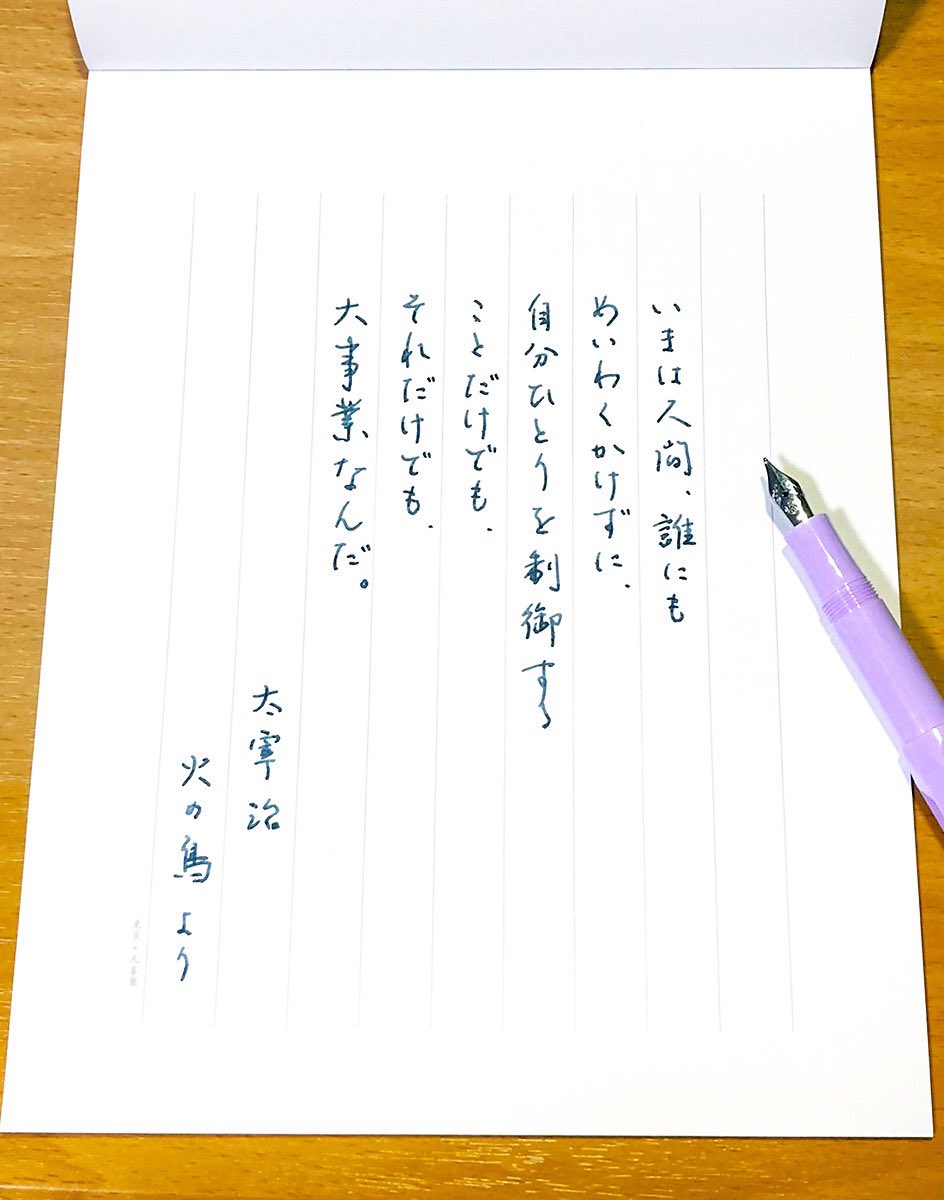 いまは人間、誰にも
めいわくかけずに、
自分ひとりを制御する
ことだけでも、
それだけでも、
大事業なんだ。
太宰治
火の鳥より